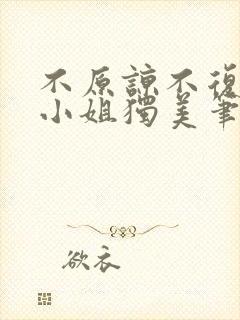 不原諒不復
小姐獨美筆
欲衣